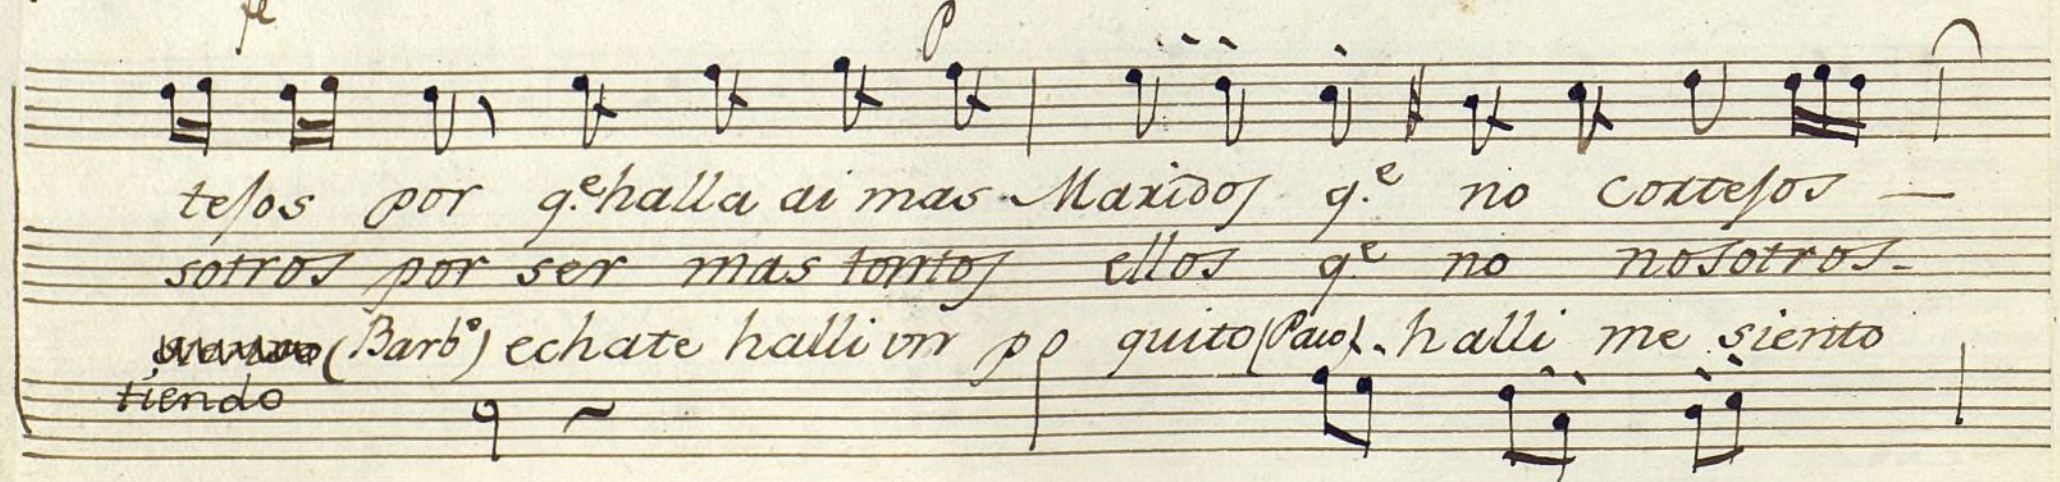 fe p
tesos por q.e halla ai mas Maridos q.e no cortesos —
sotros por ser mas tontos ellos q.e no nosotros -
(Barb.o) echate halli un po quito (Paco) . halli me siento
tiendo